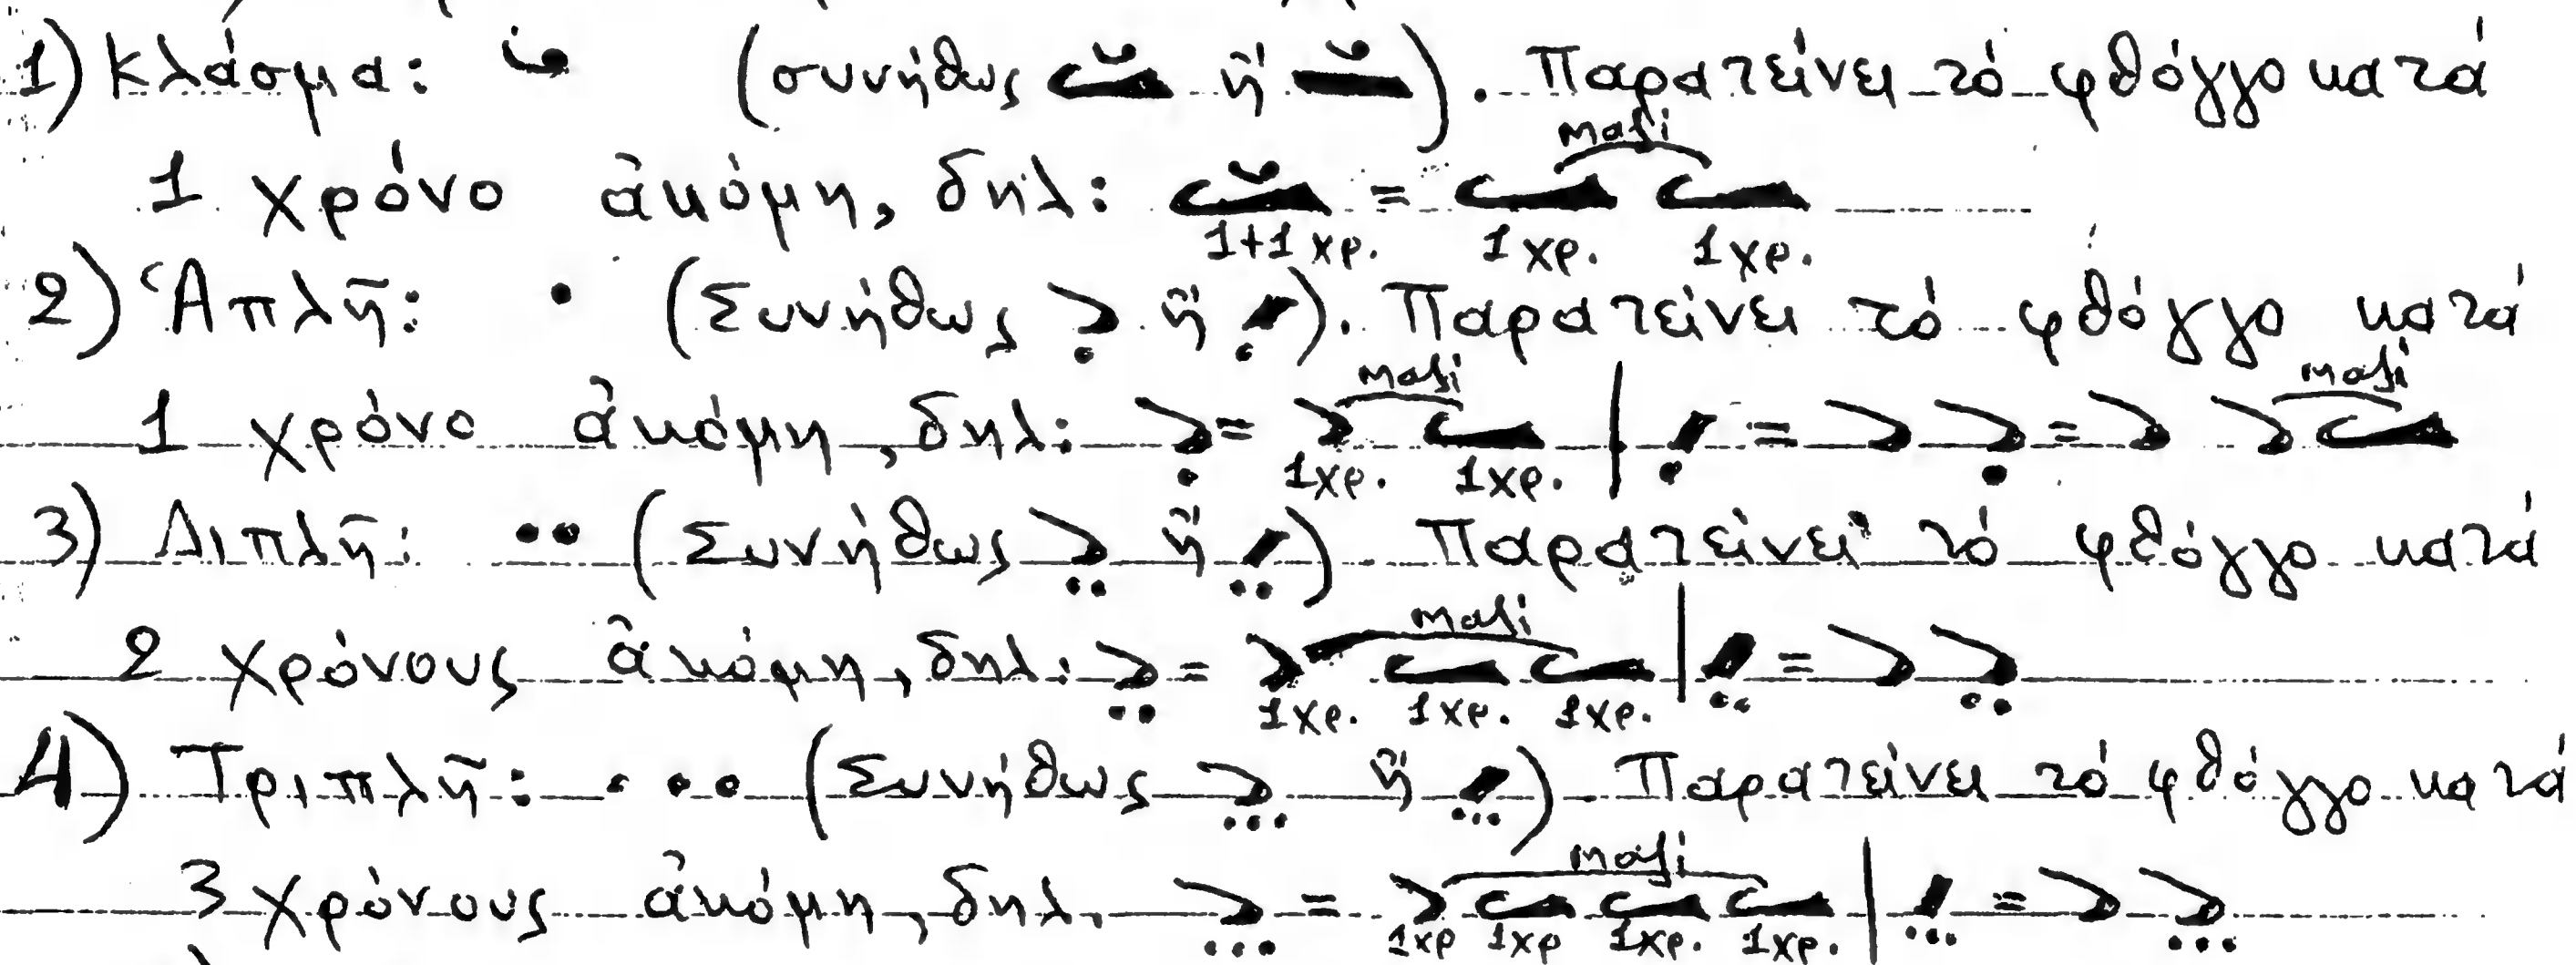 1) Κλάσμα: (συνήθως ἤ ). Παρατείνει τό φθόγγο κατά
μαζί
1 χρόνο ἀκόμη, δηλ: =
1+1 χρ. 1 χρ. 1 χρ.
2) Ἁπλῆ: • (Συνήθως ἤ ). Παρατείνει τό φθόγγο κατά
μαζί μαζί
1 χρόνο ἀκόμη, δηλ: = | = =
1χρ. 1χρ.
3) Διπλῆ: •• (Συνήθως ἤ ) Παρατείνει τό φθόγγο κατά
μαζί
2 χρόνους ἀκόμη, δηλ: = | =
1χρ. 1χρ. 1χρ.
4) Τριπλῆ: ••• (Συνήθως ἤ ). Παρατείνει τό φθόγγο κατά
μαζί
3 χρόνους ἀκόμη, δηλ. = | =
1χρ 1χρ 1χρ. 1χρ.